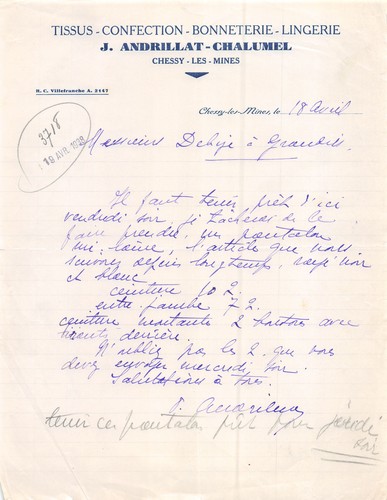 TISSUS - CONFECTION - BONNETERIE - LINGERIE
J. ANDRILLAT - CHALUMEL
CHESSY - LES - MINES
R. C. Villefranche A. 2147
Chessy-les-Mines, le 18 avril
3718
19 AVR 1938
Messieurs Debize à
Il faut tenir prêt d'ici
vendredi soir, je tâcherai de le
faire prendre, un pantalon
mi-laine, l'article que vous
suivez depuis longtemps, rayé noir
et blanc
ceinture 102
entre-jambe 72
ceinture montante 2 boutons avec
derrière
N'oubliez pas les 2 que vous
devez envoyer mercredi soir.
Salutations à tous.
tenir ces pantalons prêt pour jeudi
soir